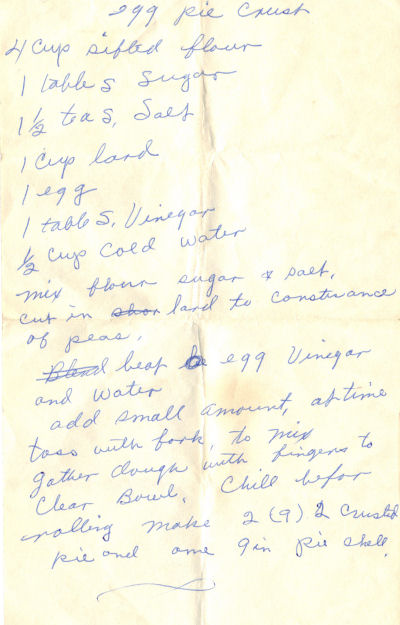 egg pie Crust
4 Cup sifted flour
1 table S Sugar
1 1/2 tea S, Salt
1 Cup lard
1 egg
1 table S, Vinegar
1/2 Cup Cold Water
mix flour sugar & salt,
cut in shor lard to constivance
of peas,
Blend beat egg Vinegar
and Water
add small amount, at time
toss with fork, to mix
gather dough with fingers to
Clear Bowl, Chill befor
rolling make 2 (9) 2 Crusted
pie and one 9 in pie shell,